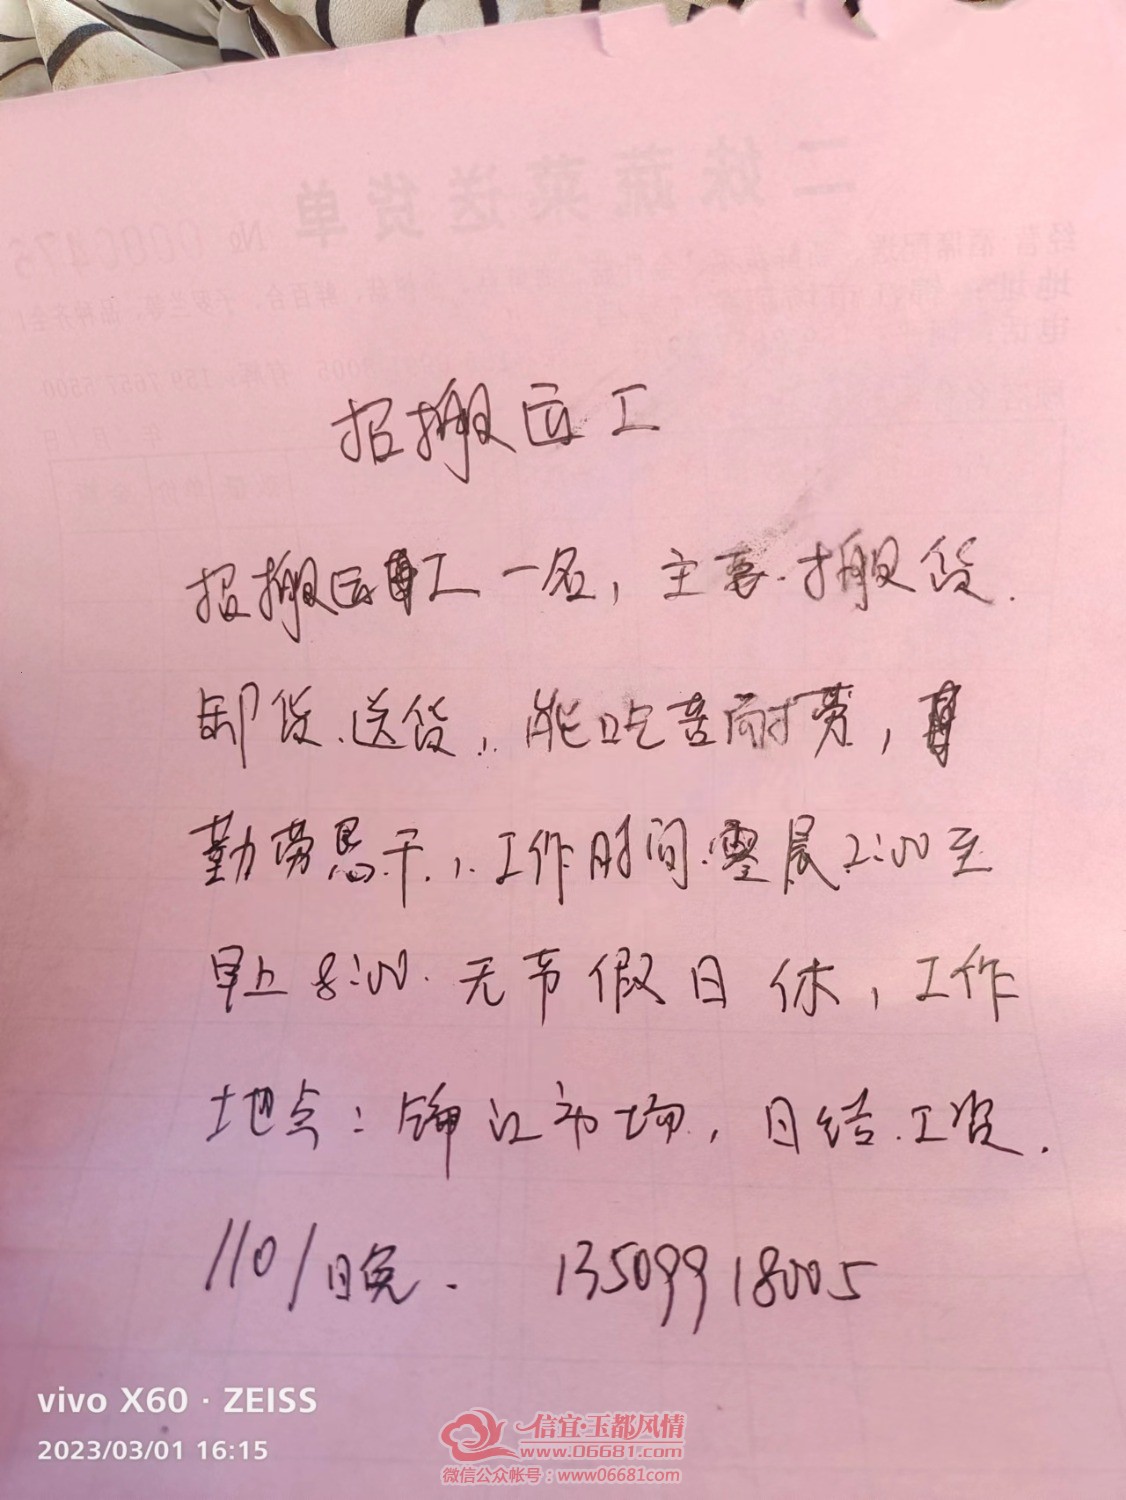 二妹蔬菜送货单
No 0000476
招搬运工
招搬运工一名，主要.搬货.
卸货.送货，能吃苦耐劳，
勤劳恳干，工作时间:零晨2:00至
早上8:00.无节假日休，工作
地点：锦江市场，日结.工资.
110/日晚.  13509918005
vivo X60 · ZEISS
2023/03/01 16:15
信宜·玉都风情
www.06681.com
微信公众帐号：www06681com